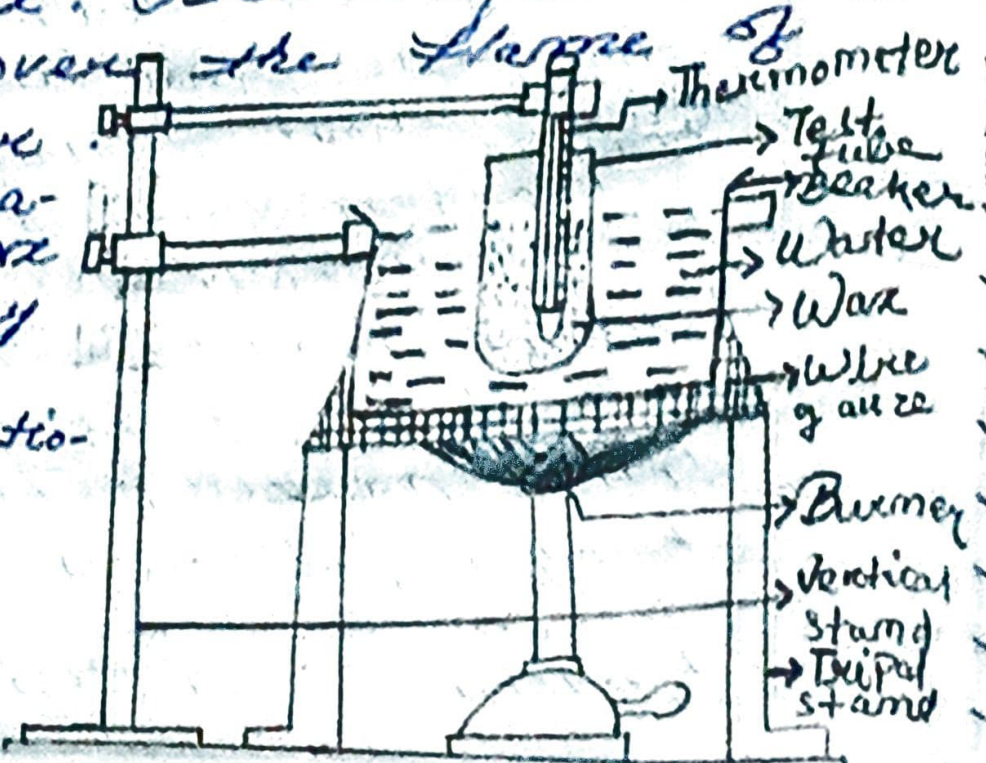 over the flame of
Thermometer
Test
tube
Beaker
Waster
Wax
Wire
gauze
Burner
Vertical
stand
Tripal
stand